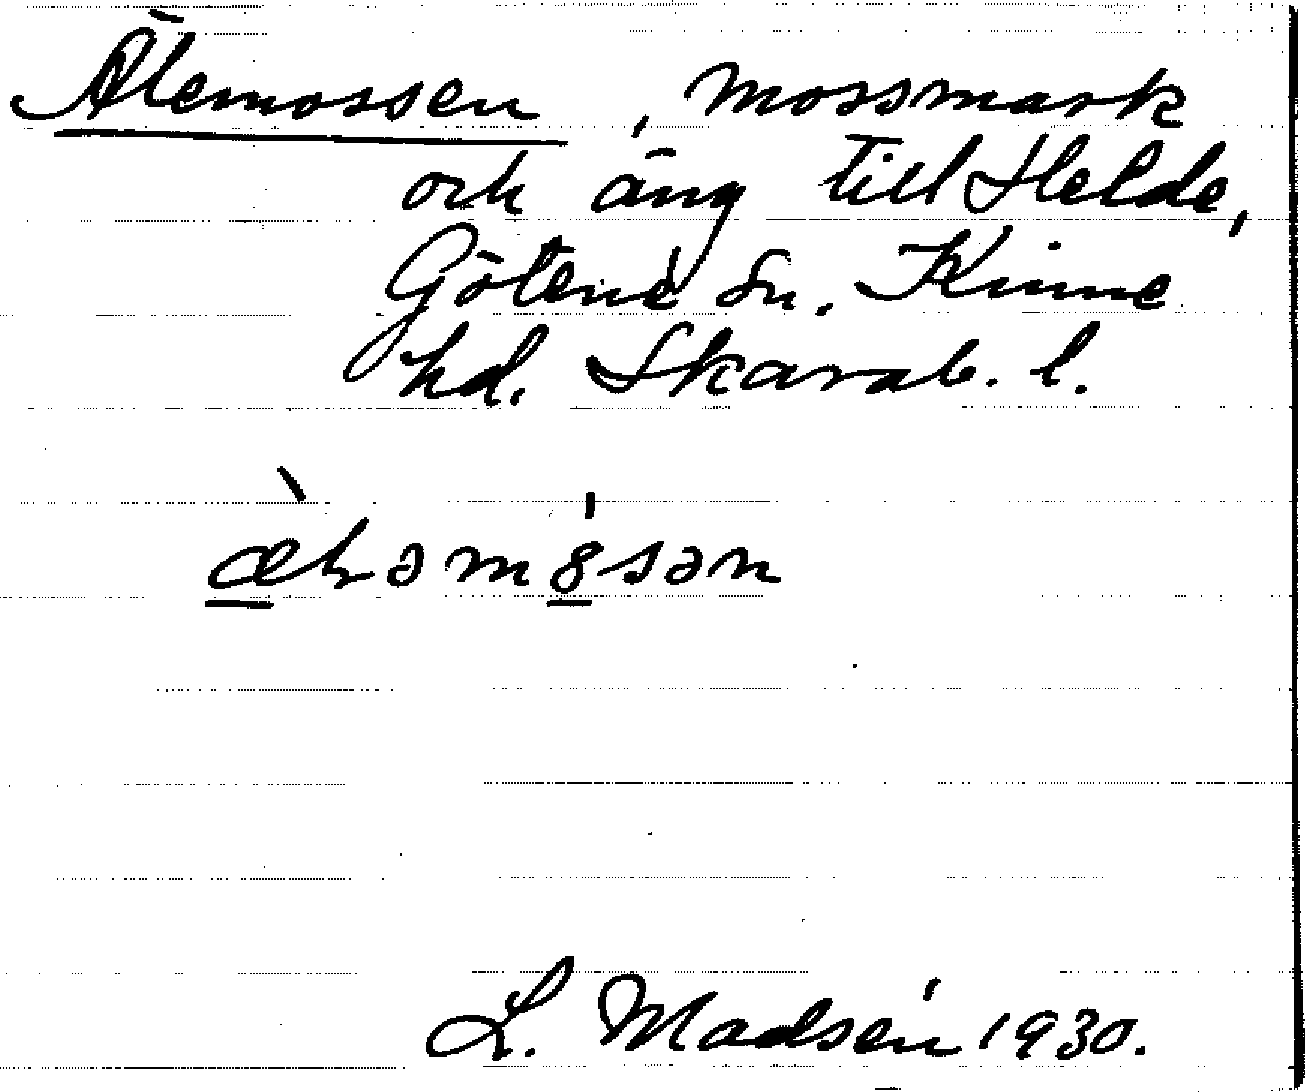 Älemossen, mossmark
och äng till Helde,
Götene sn. Kinne
hd. Skarab. l.
L. Madsén 1930.